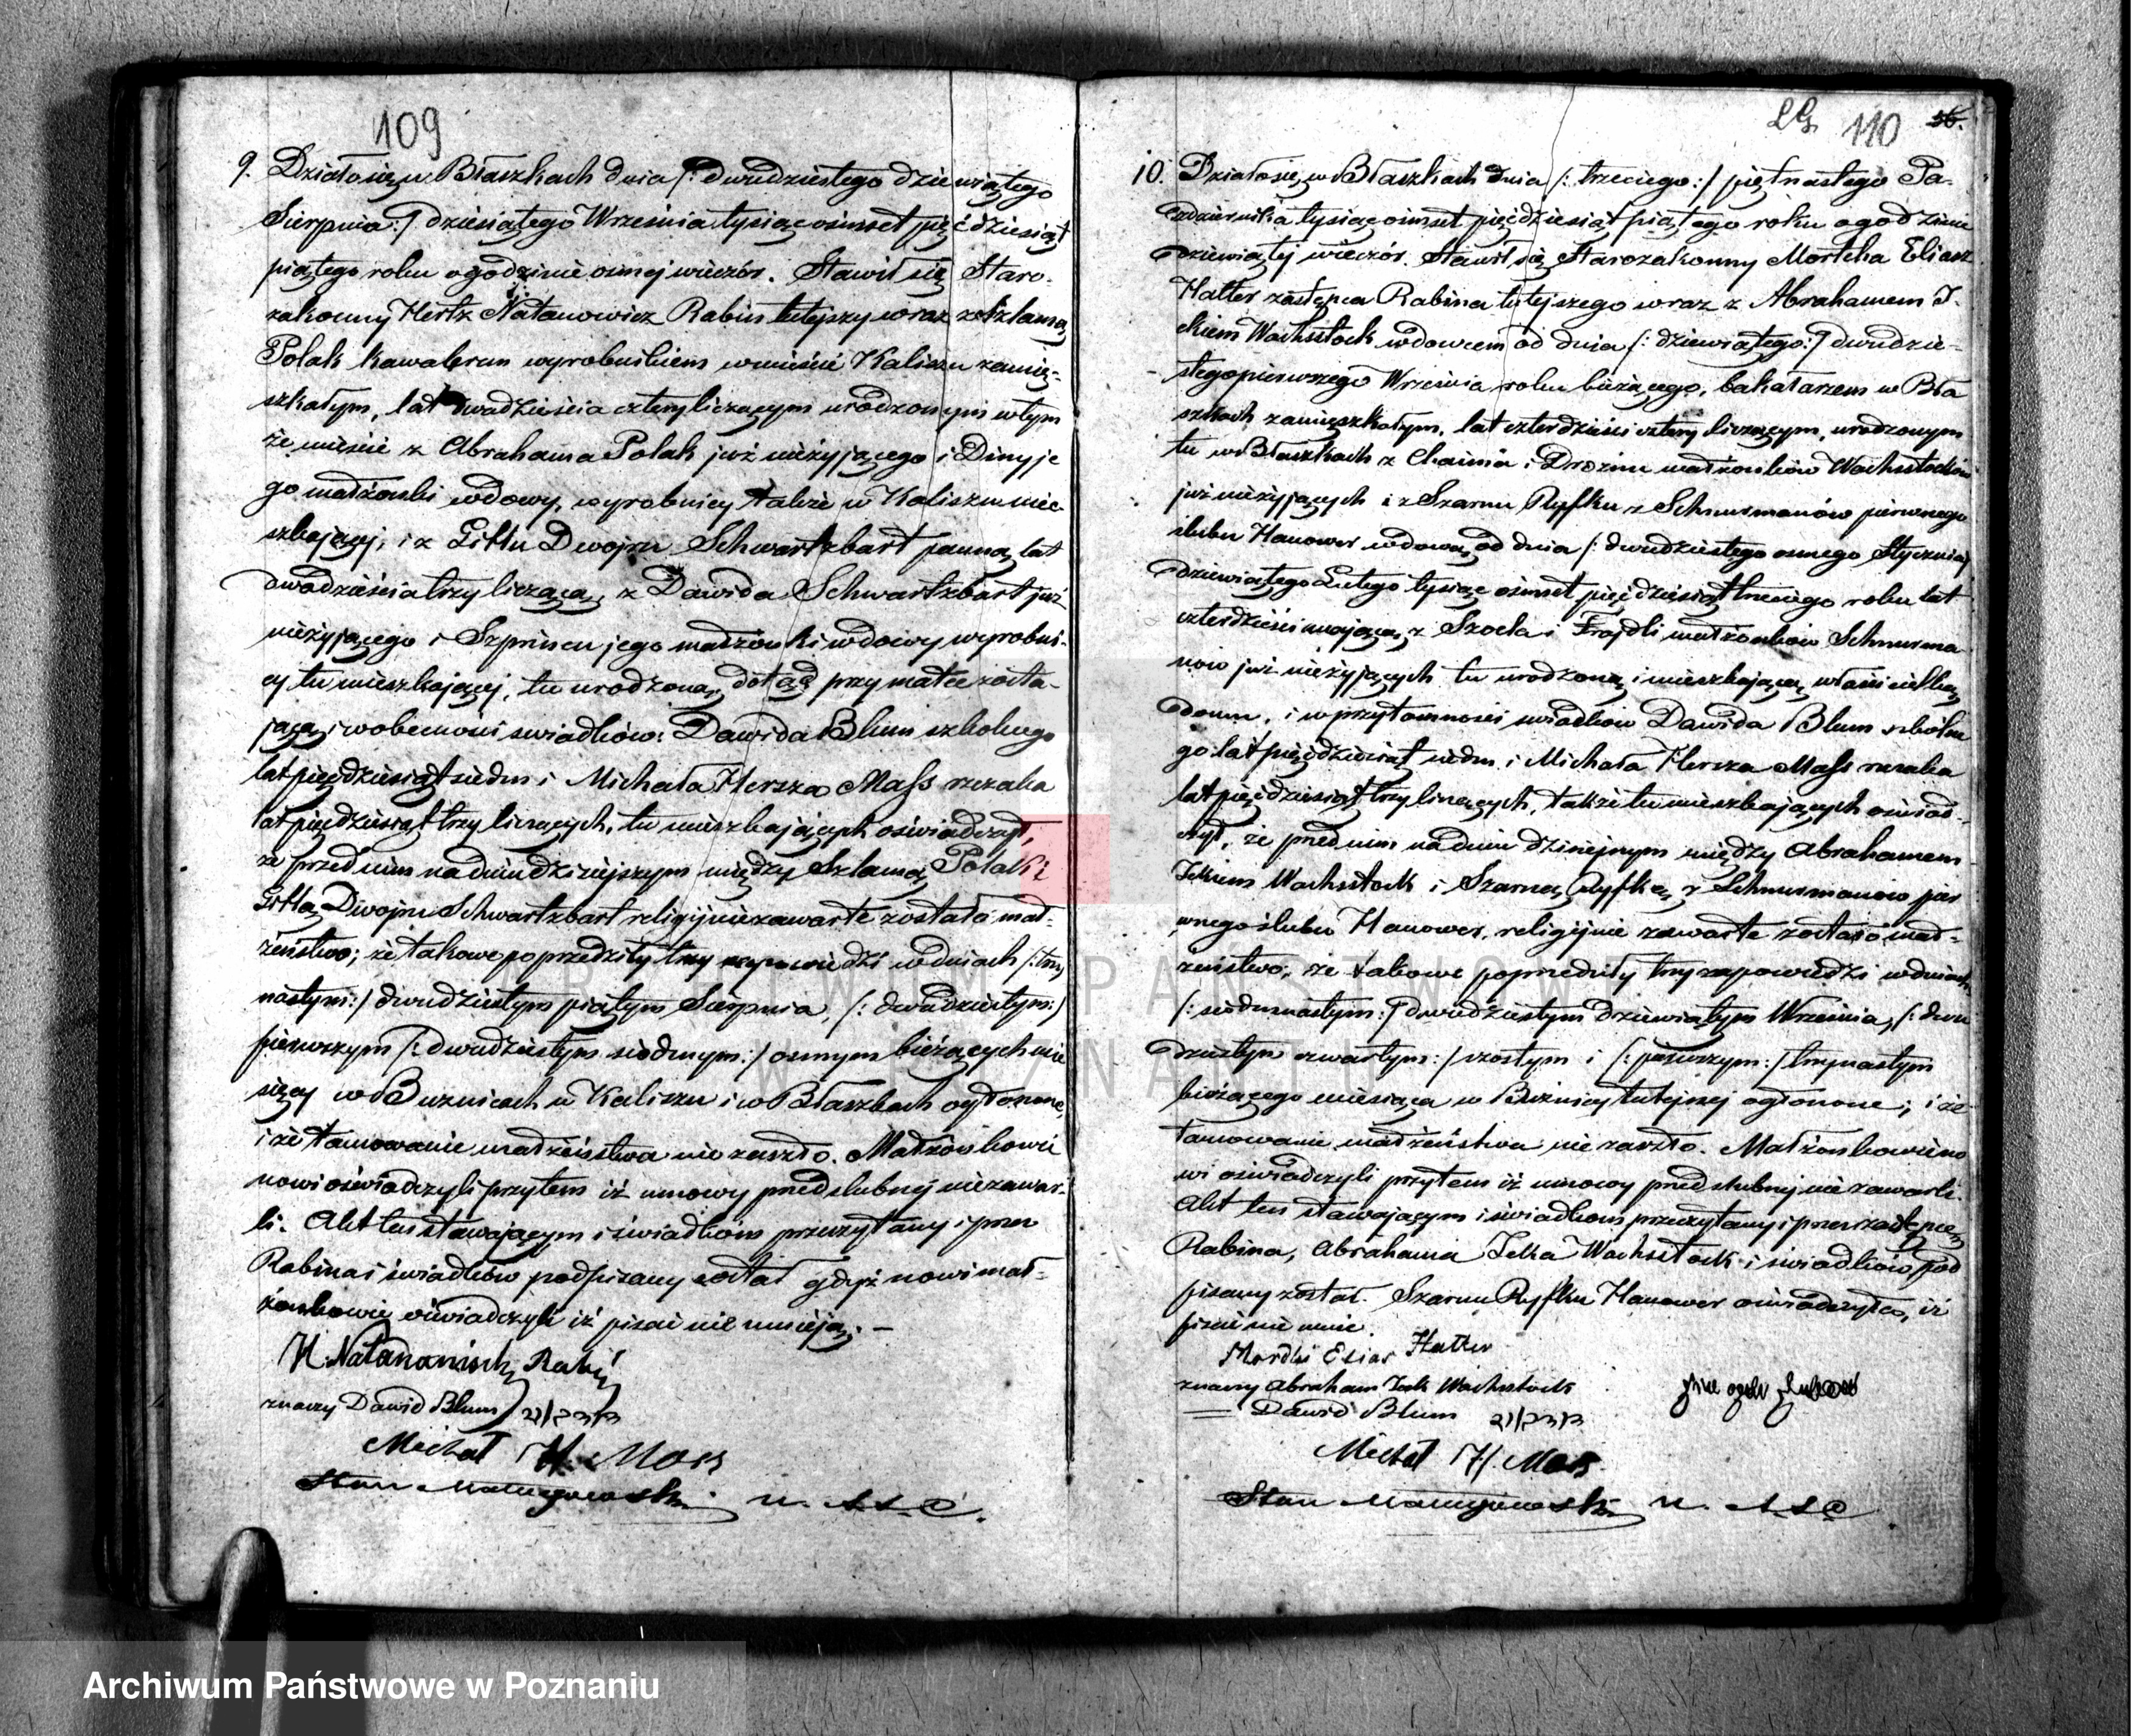 109
9. Działo się w Błaszkach dnia /: dwudziestego dziewiątego
Sierpnia :/ dziesiątego Września tysiąc ośmset pięćdziesiąt
piątego roku o godzinie ósmej wieczór. Stawił się Staro-
zakonny Hertz Natanowicz Rabin tutejszy wraz z Szlamą
Polak kawalerem wyrobnikiem w mieście Kaliszu zamię-
szkałym, lat dwadzieścia cztery liczącym urodzonym w tym
że mieście z Abrahama Polak już nieżyjącego i Diny je
go małżonki wdowy, wyrobnicy także w Kaliszu mie-
szkającej, i z Gittu Dwojru Schwartzbart panną, lat
dwadzieścia trzy liczącą, z Dawida Schwartzbart już
nieżyjącego i Szprincu jego małżonki wdowy wyrobni-
cy tu mieszkającej, tu urodzoną, dotąd przy matce zosta-
jącą, i w obecności świadków: Dawida Blum szkolnego
lat pięćdziesiąt siedm i Michała Hersza Mass rzezaka
lat pięćdziesiąt trzy liczących, tu mieszkających oświadczył,
że przed nim na dniu dzisiejszym między Szlamą Polak i
Gittą Dwojru Schwartzbart religijnie zawarte zostało mał-
żeństwo; że takowe poprzedziły trzy zapowiedzi w dniach /: trzy
nastym :/ dwudziestym piątym Sierpnia, /: dwudziestym :/
pierwszym /: dwudziestym siódmym :/ ósmym bieżących mie
sięcy w Bużnicach w Kaliszu i w Błaszkach ogłoszone,
i że tamowanie małżeństwa nie zaszło. Małżonkowie
nowi oświadczyli przytem iż umowy przedślubnej nie zawar-
li. Akt ten stawającym i świadkom przeczytany i przez
Rabina i świadków podpisany został gdyż nowi mał-
żonkowie oświadczyli iż pisać nie umieją. —
H. Natanowicz, Rabin
znaczy Dawid Blum
Michał H. Mass
110
56.
10. Działo się w Błaszkach dnia /: trzeciego :/ piętnastego Pa-
ździernika tysiąc ośmset pięćdziesiąt piątego roku o godzinie
dziewiątej wieczór. Stawił się Starozakonny Mortka Eliasz
Halter zastępca Rabina tutejszego wraz z Abrahamem I-
ckiem Wachsstock wdowcem od dnia /: dziewiątego :/ dwudzie-
stego pierwszego Września roku bieżącego, bakałarzem w Bła
szkach zamięszkałym, lat czterdzieści cztery liczącym, urodzonym
tu w Błaszkach z Chaima i małżonków Wachsstocków
już nieżyjących i z Szarnu Ryfku z Schnurmanów pierwszego
ślubu Hanower wdową od dnia /: dwudziestego osmego Stycznia :/
dziewiątego Lutego tysiąc ośmset pięćdziesiąt trzeciego roku lat
czterdzieści mającą, z Szoela i Frajdli małżonków Schnurma
nów już nieżyjących tu urodzoną i mieszkającą, właścicielką
domu, i w przytomności świadków Dawida Blum szkolne
go lat pięćdziesiąt siedm i Michała Hersza Mass rzezaka
lat pięćdziesiąt trzy liczących, także tu mieszkających oświad-
czył, że przed nim na dniu dzisiejszym między Abrahamem
Ickiem Wachsstock i Szarną Ryfką z Schnurmanów pier
wszego ślubu Hanower, religijnie zawarte zostało mał-
żeństwo; że takowe poprzedziły trzy zapowiedzi w dniach
/: siedmnastym :/ dwudziestym dziewiątym Września, /: dwu
dziestym czwartym :/ szóstym i /: pierwszym :/ trzynastym
bieżącego miesiąca w Bużnicy tutejszej ogłoszone; i że
tamowanie małżeństwa nie zaszło. Małżonkowie no
wi oświadczyli przytem iż umowy przedślubnej nie zawarli.
Akt ten stawającym i świadkom przeczytany i przez zastępcę
Rabina, Abrahama Icka Wachsstock i świadków pod
pisany został. Szarnu Ryfku Hanower oświadczyła, iż
pisać nie umie.
Mordki Elias Halter
znaczy Abraham Icek Wachsstock
— Dawid Blum
Michał H. Mass
ARCHIWUM PAŃSTWOWE
W POZNANIU
Archiwum Państwowe w Poznaniu